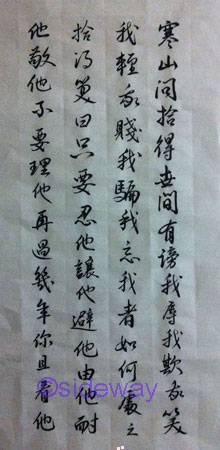 寒山問拾得世間有謗我辱我欺我笑
我輕我賤我騙我忘我者如何處之
拾得笑曰只要忍他讓他避他由他耐
他敬他不要理他再過幾年你且看他
©sideway